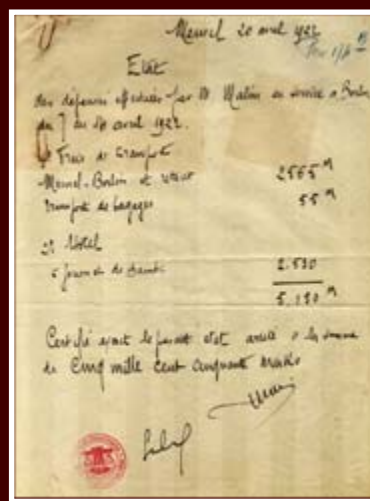 Memel 20 avril 1922
Etat
des dépenses effectuées par M. Matin en service à Berlin
du 7 au 16 avril 1922.
1° Frais de transport
Memel-Berlin et retour 2565 M
Transport de bagages 55 M
2° Hôtel
5 journées de chambre 2.530
5.150 M
Certifié exact le présent état arrêté à la somme
de Cinq mille cent cinquante marks